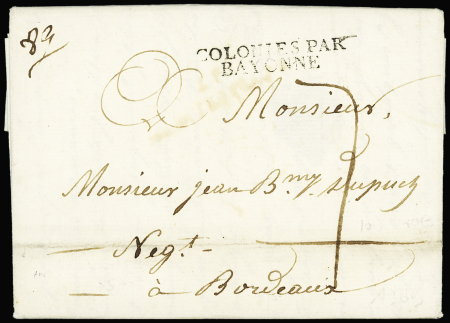 83
COLONIES PAR
BAYONNE
Monsieur,
Monsieur jean B.my. Dupuch
7
Neg.t -
à Bordeaux